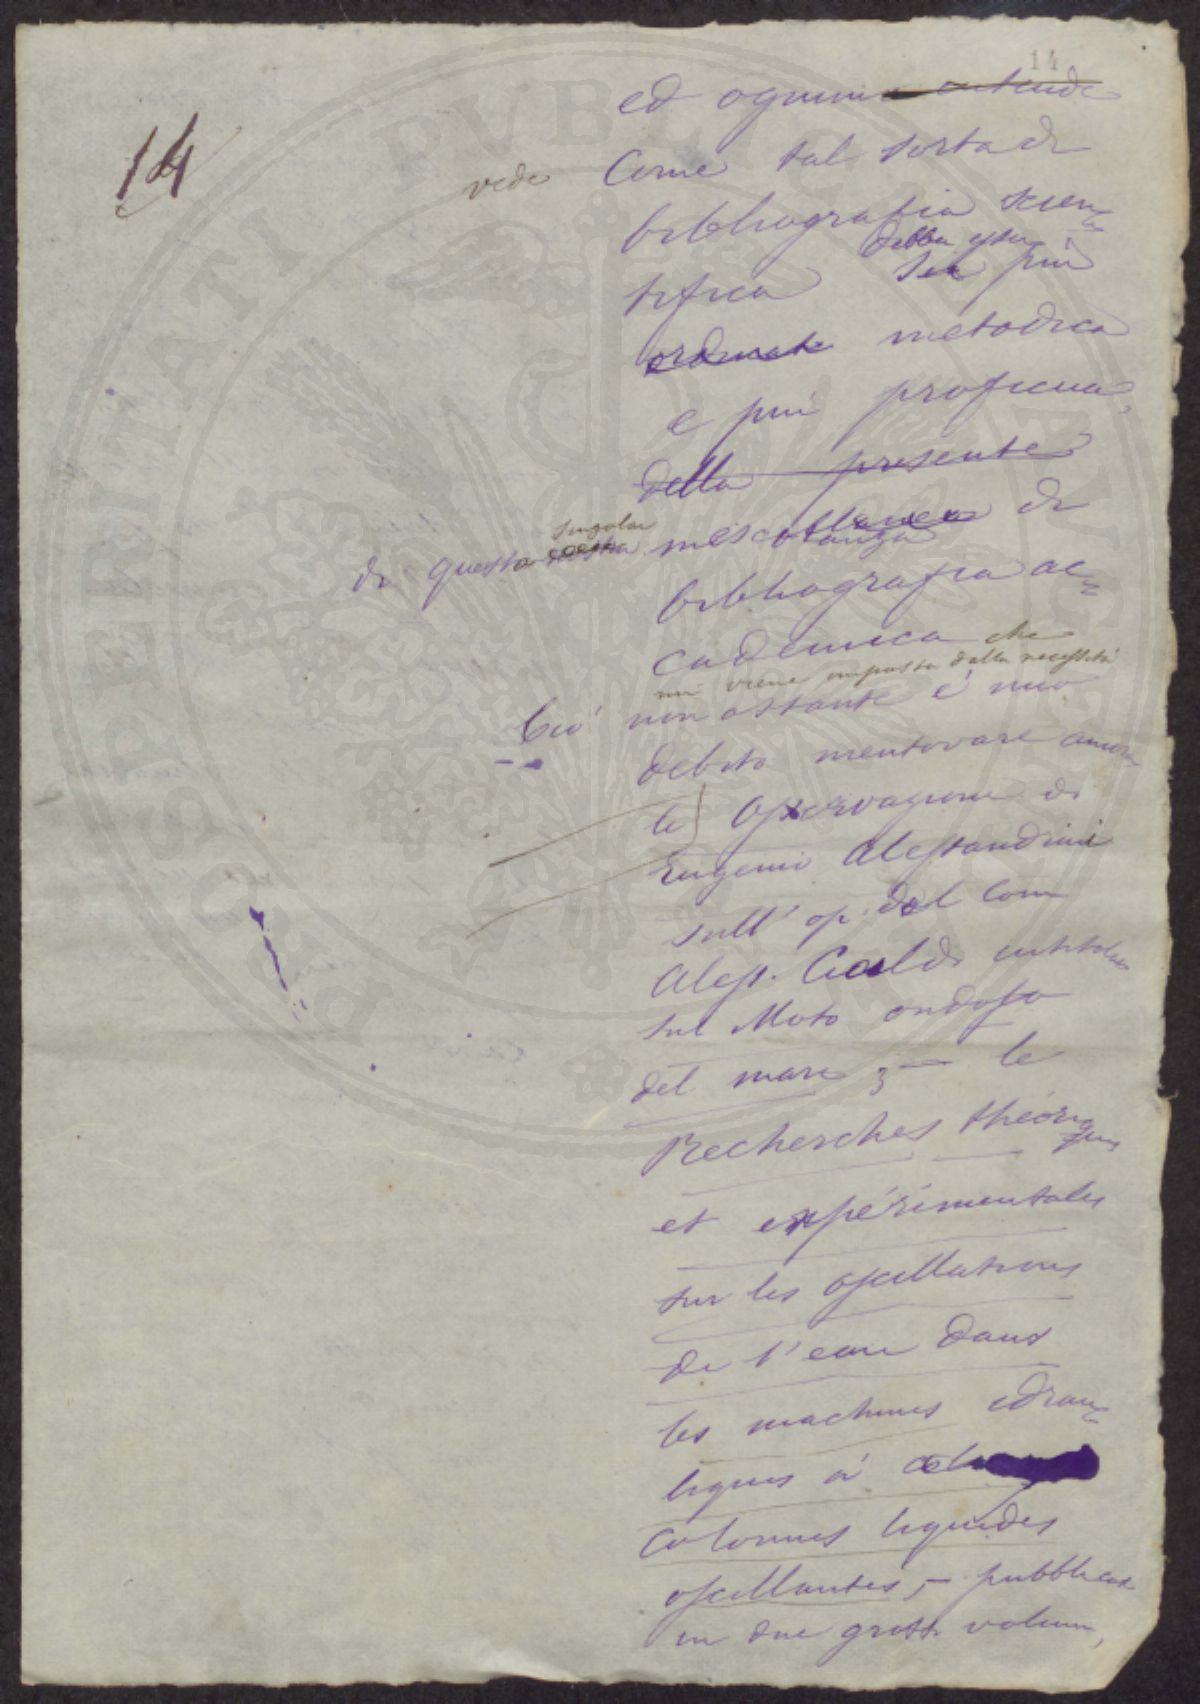 14
14
ed ognuno intende
vede Come tal sorta di
bibliografia scien=
debba esser
tifica sia più
ordinata metodica
e più proficua,
della presente
singolar
di questa nostra mescolanza di
bibliografia ac=
cademica che
mi viene imposta dalla necessità
Ciò non ostante è mio
debito mentovare ancora
le Osservazioni di
Eugenio Alessandrini
sull' op. del Com
Aless. Cialdi intitolata
sul Moto ondoso
del mare; — le
Recherches théoriques
et expérimentales
sur les oscillations
de l'eau dans
les machines idrau=
liques à
colonnes liquides
oscillantes, — pubblicate
in due grossi volumi,